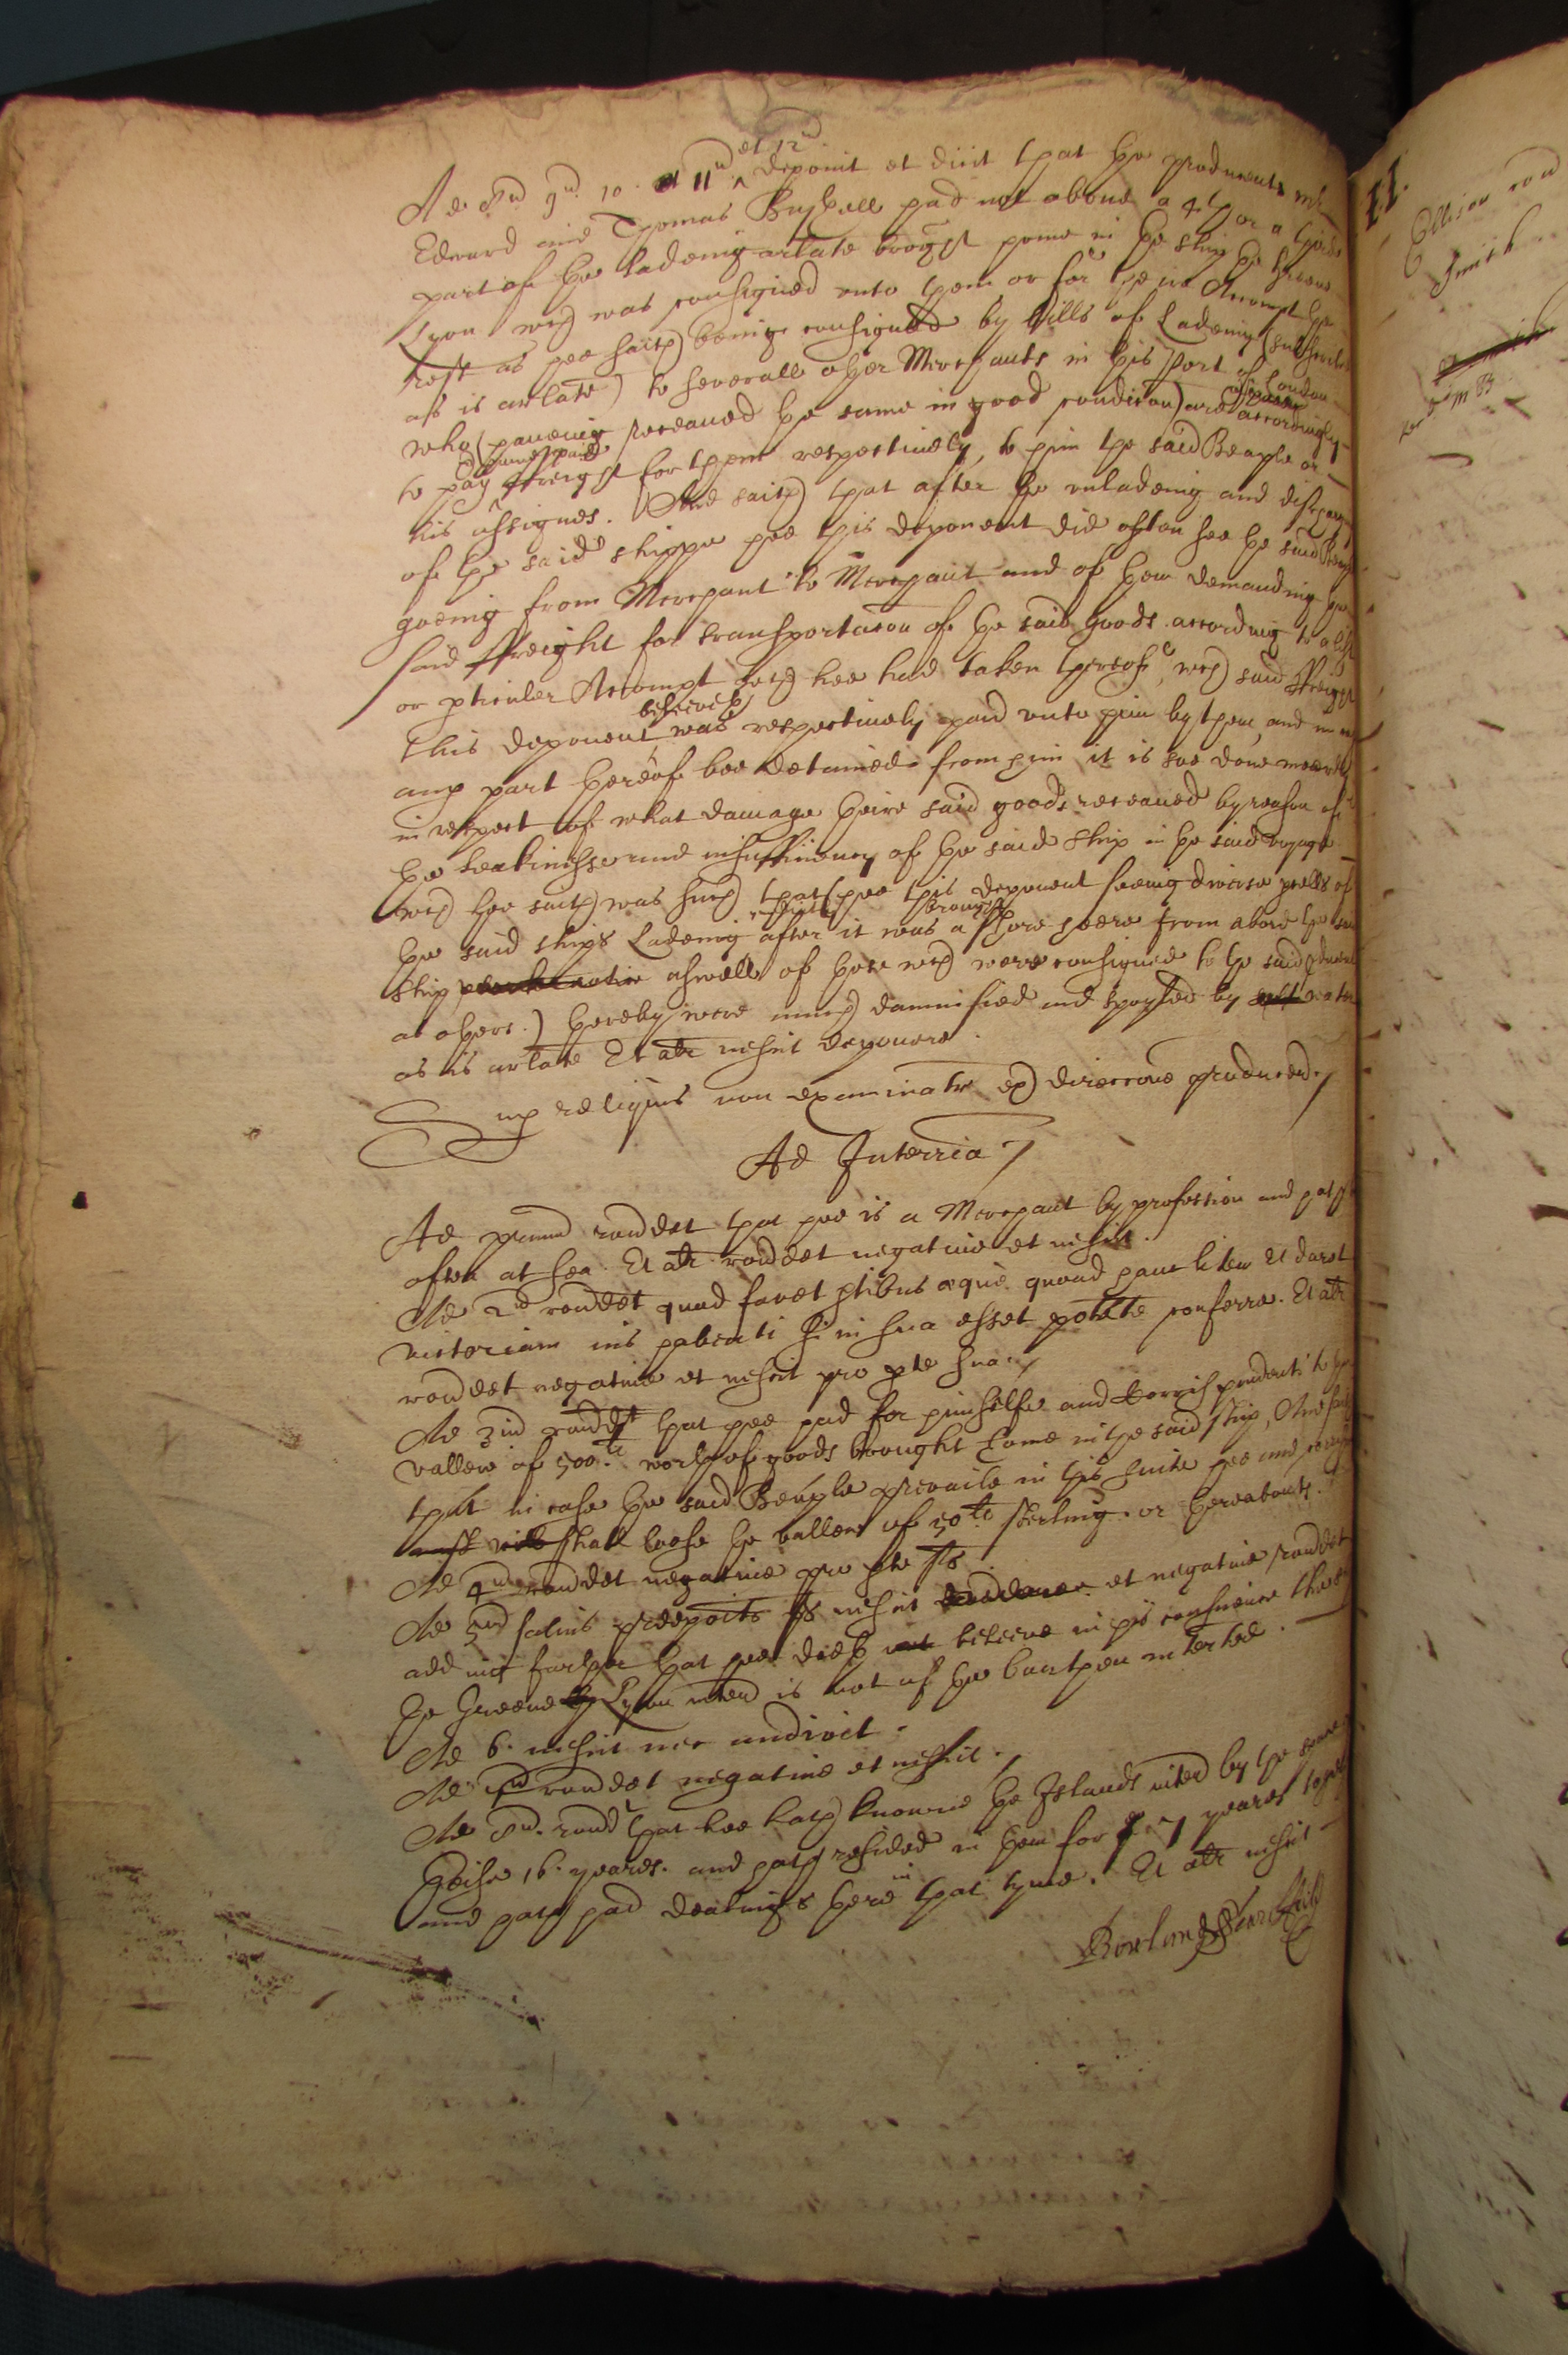 Ad 8um 9um 10. et 11um et 12um deponit et dicit that the producents mr
Edward and Thomas Bushell had not above a 4th or a third
part of the ladeing arlate brought home in the ship the Greene
Lyon wch was consigned unto them or for theire Accompt the
rest as hee saith being consigned by bills of Ladeing (subscribed
as is arlate) to severall other Merchants in this Port of London
who (haveing receaved the same in good condition) are accordingly
to pay freight for them respectively, to him the said Beaple or
his assignes. And saith that after the unladeing and discharge
of the said shippe hee this deponent did often see the said Beaple
goeing from Merchant to Merchant and of them demanding the
said ffreight for transportacon of the said goods according to a list
or pticuler Accompt wch hee had taken thereof, wch said ffreight
this deponent beleeveth was respectively paid unto him by them, and in case
any part thereof bee detained from him it is soe done meerely
in respect of what damage theire said goods receaved by reason of
the leakinesse and insufficiency of the said ship in the said voyage
wch hee saith was such that (hee this deponent seeing diverse pcells of
the said ships Ladeing after it was brought a shore heere from aboard the said
ship aswell of those wch were consigned to the said pducents
as others) thereby were much damnified and spoyled by water
as is arlate Et alr nescit deponere.
Sup reliquis non examinatr ex direccone producend.
Ad Interria
Ad primum rondet that hee is a Merchant by profession and hath
often at sea. Et alr rondet negative et nescit.
Ad 2um rondet quod favet ptibus aeque quoad hanc litem et daret
victoriam ius habenti si in sua esset potate conferre. Et alr
rondet negative et nescit pro pte sua.
Ad 3ium rondet that hee had for himselfe and Correspondents to the
vallew of 500li. worth of goods brought home in the said ship, And saith
that in case the said Beaple prevaile in this suite hee and
shall loose the vallew of 50li sterling. or thereabouts.
Ad 4um rondet negative pro pte sua
Ad 5um salvis predeposits nescit et negative rondet
adding farther that hee doeth beleeve in his conscience that
the Greene Lyon interr is not of the burthen interrted.
Ad 6. nescit nec audivit.
Ad 7um rondet negative et nescit.
Ad 8um. rondet that hee hath knowne the Islands interr by the space
these 16. yeares. and hath resided in them for 7 yeares
and hath had dealings there in that tyme. Et alr nescit